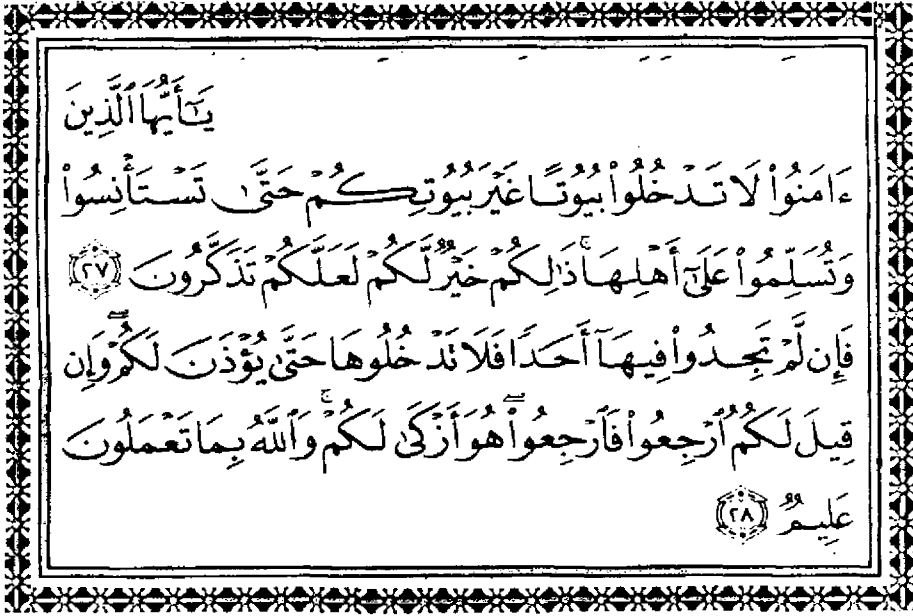 يَٰٓأَيُّهَا ٱلَّذِينَ
ءَامَنُوا۟ لَا تَدْخُلُوا۟ بُيُوتًا غَيْرَ بُيُوتِكُمْ حَتَّىٰ تَسْتَأْنِسُوا۟
وَتُسَلِّمُوا۟ عَلَىٰٓ أَهْلِهَا ۚ ذَٰلِكُمْ خَيْرٌ لَّكُمْ لَعَلَّكُمْ تَذَكَّرُونَ ٢٧
فَإِن لَّمْ تَجِدُوا۟ فِيهَآ أَحَدًا فَلَا تَدْخُلُوهَا حَتَّىٰ يُؤْذَنَ لَكُمْ ۖ وَإِن
قِيلَ لَكُمُ ٱرْجِعُوا۟ فَٱرْجِعُوا۟ ۖ هُوَ أَزْكَىٰ لَكُمْ ۚ وَٱللَّهُ بِمَا تَعْمَلُونَ
عَلِيمٌ ٢٨